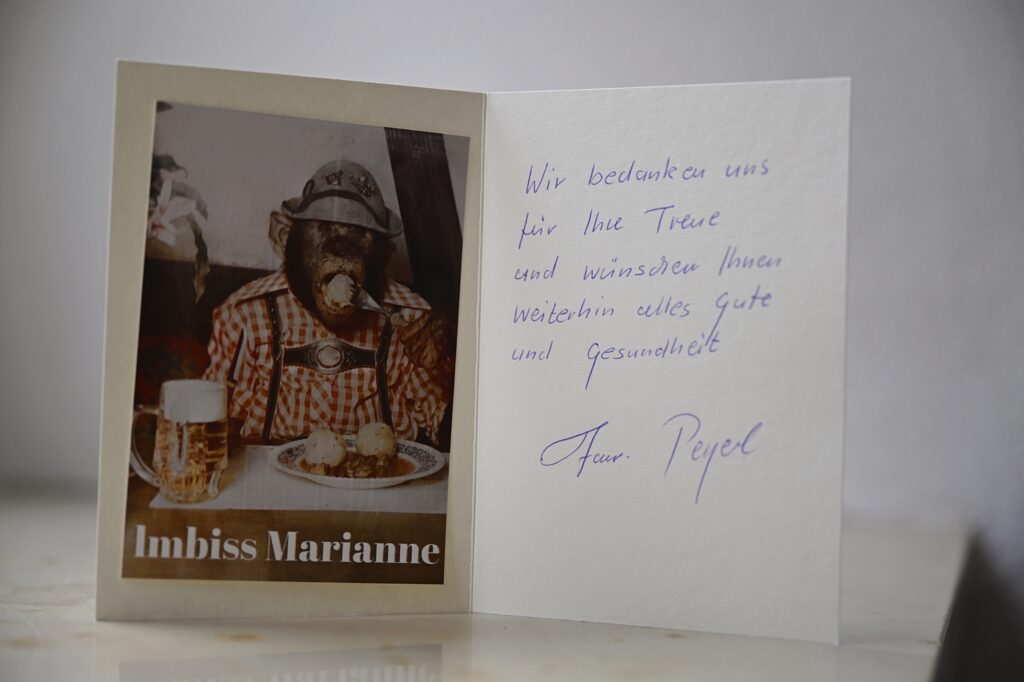 Imbiss Marianne
Wir bedanken uns
für Ihre Treue
und wünschen Ihnen
weiterhin alles Gute
und Gesundheit
Fam. Peyerl